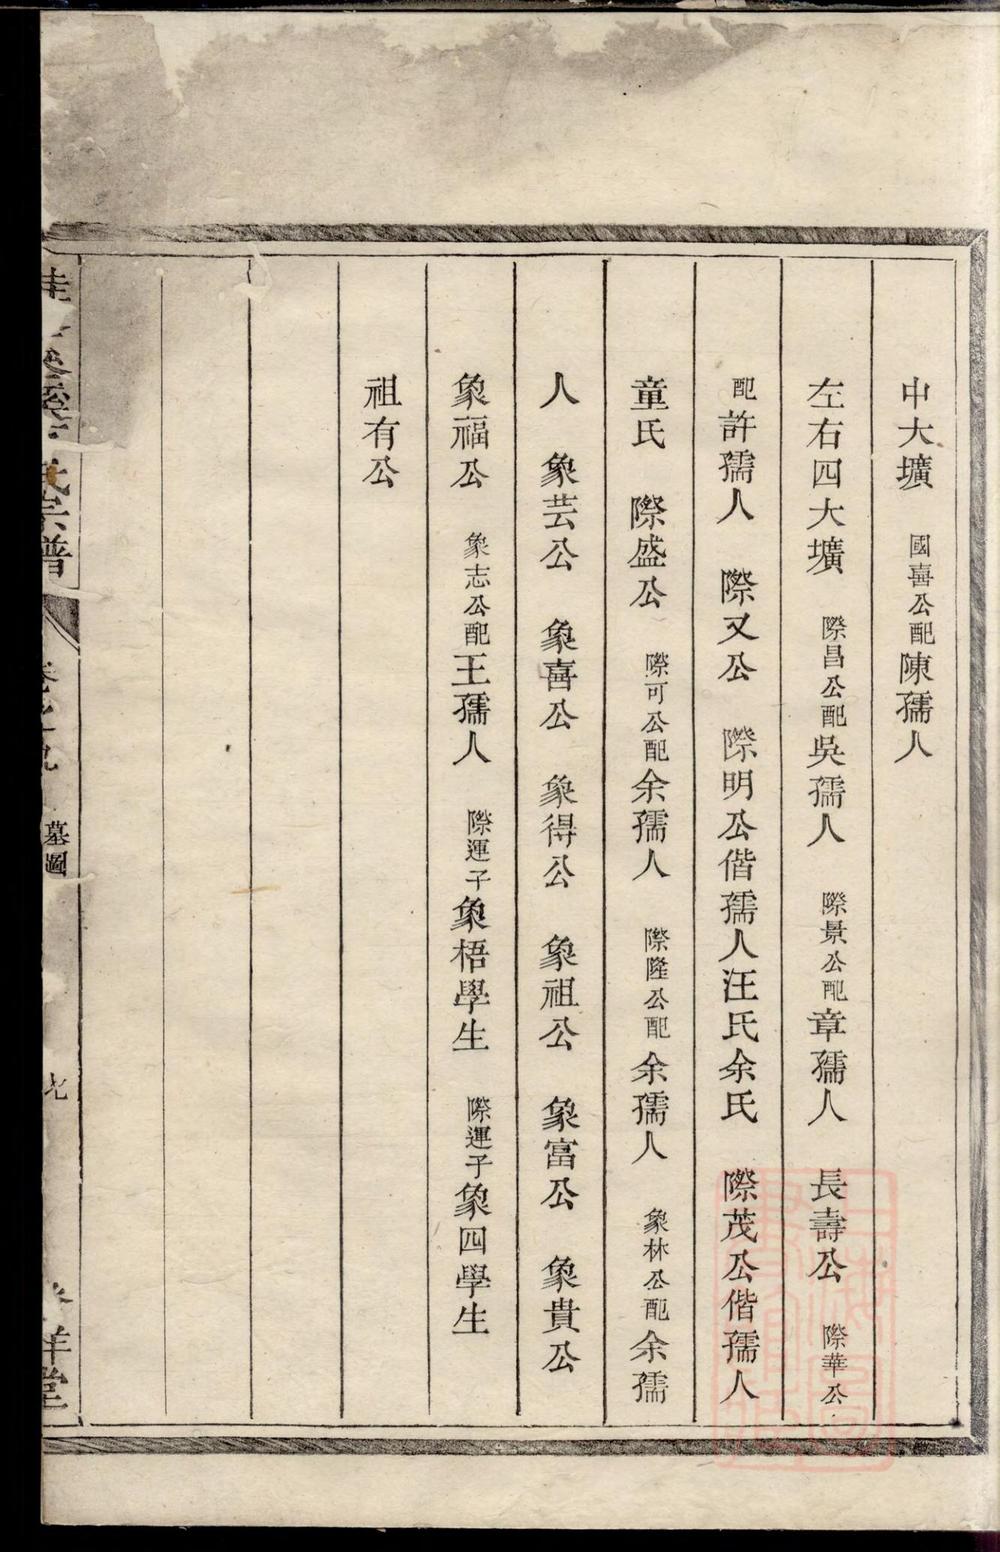 中大壙 國喜公配陳孺人
左右四大壙 際昌公配吳孺人 際景公配章孺人 長壽公 際華公
配許孺人 際又公 際明公偕孺人汪氏余氏 際茂公偕孺人
童氏 際盛公 際可公配余孺人 際隆公配余孺人 象林公配余孺
人 象芸公 象喜公 象得公 象祖公 象富公 象貴公
象福公 象志公配王孺人 際運子象梧學生 際運子象四學生
祖有公
氏宗譜
墓圖
祥堂